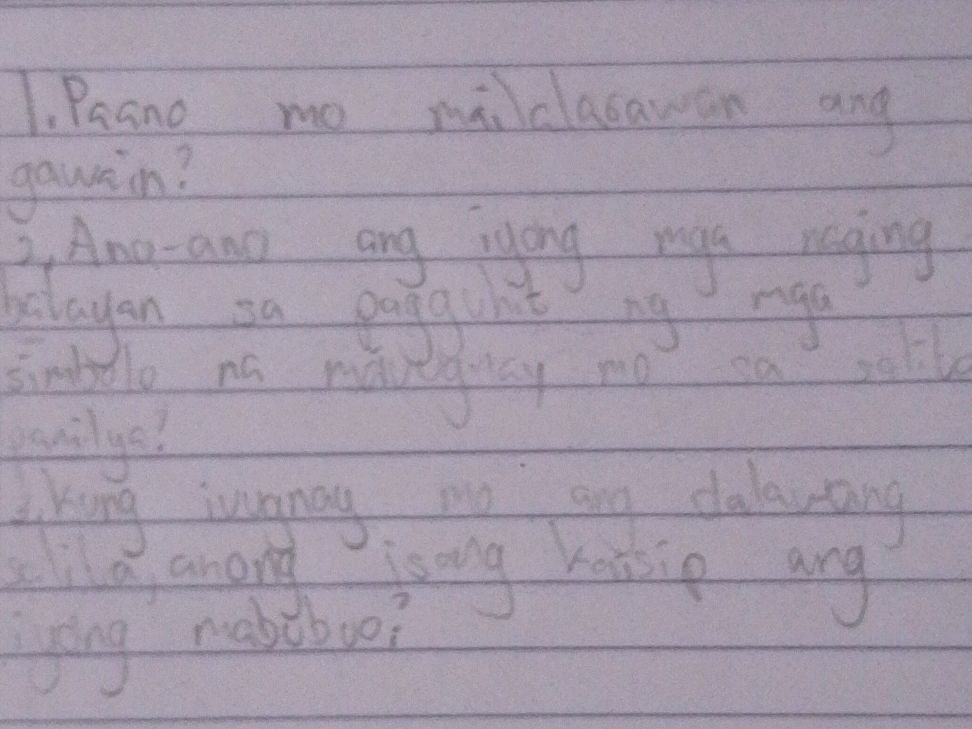 1. Paano mo mailalarawan ang
gawain?
2. Ano-ano ang iyong mga naging
batayan sa pagguhit ng mga
simbolo na maiuugnay mo sa salita
pamilya?
3. Kung iuugnay mo ang dalawang
salita, anong isang kaisip ang
iyong mabubuo?